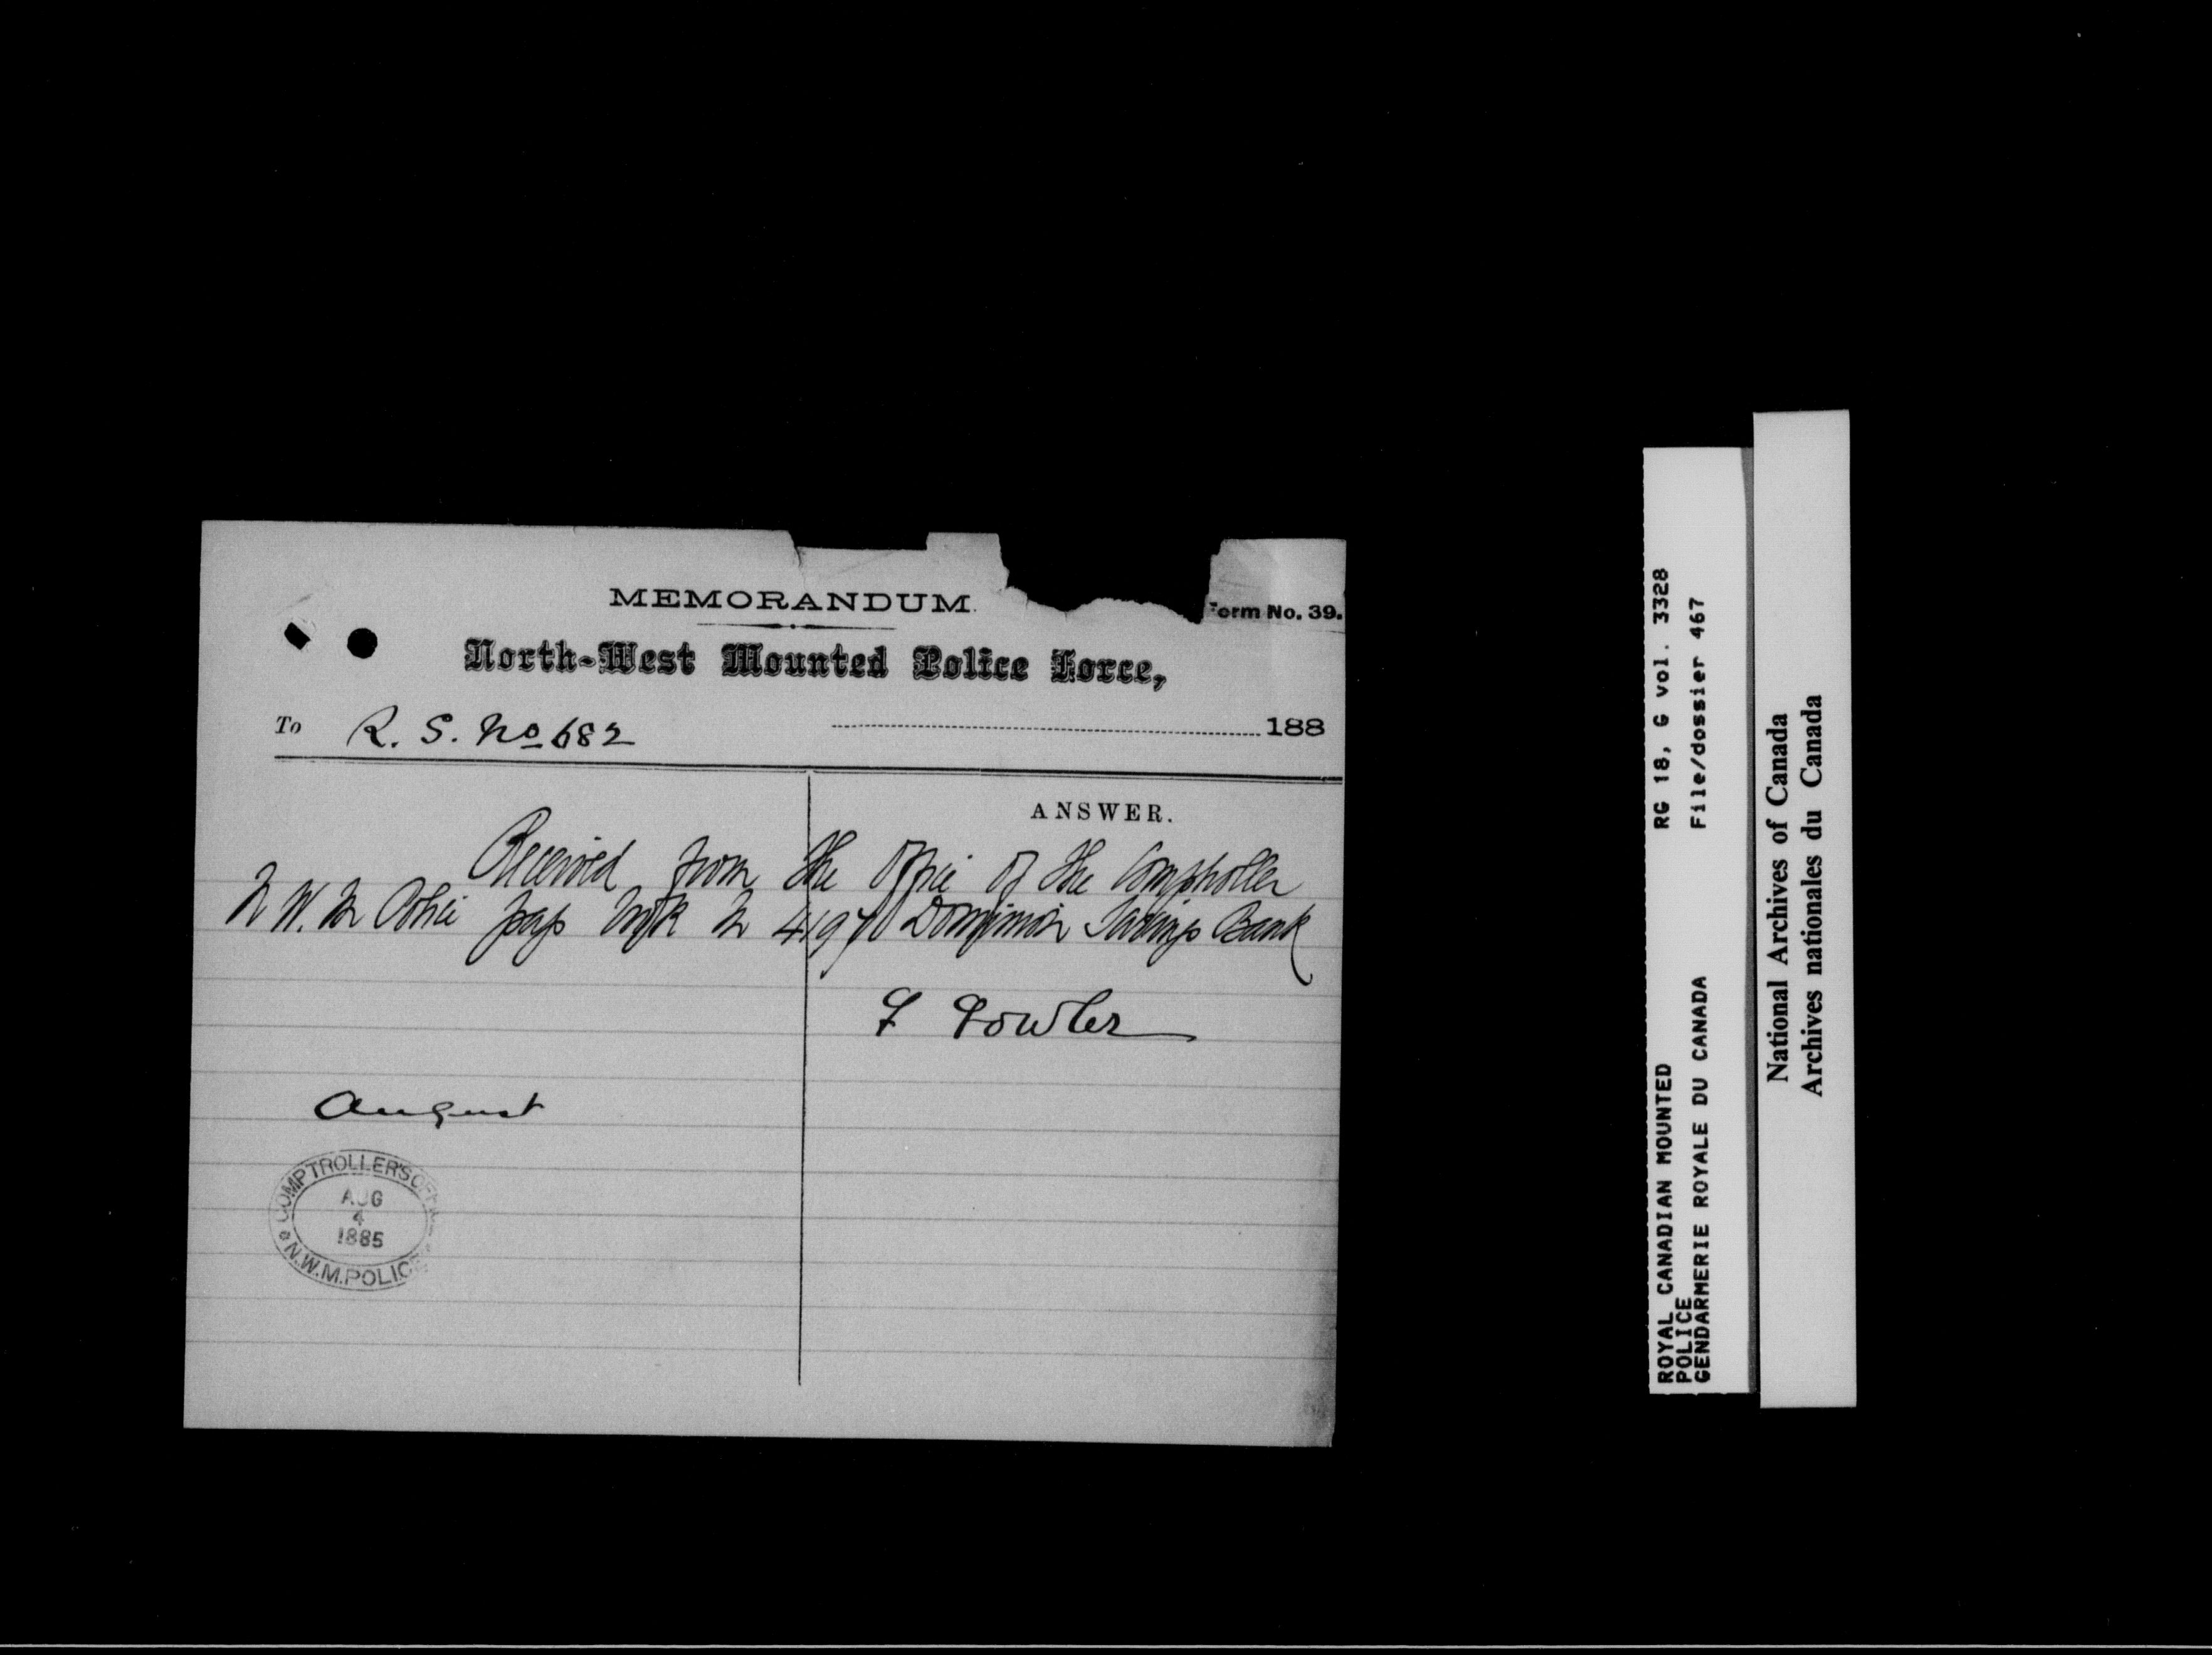 MEMORANDUM.
Form No. 39.
North-West Mounted Police Force,
To R. S. No 682
188
ANSWER.
Received from the Office of the Comptroller
N W. M Police pass book No Dominion Savings Bank
F Fowler
August
COMPTROLLER'S OFFICE
AUG
4
1885
N.W.M.POLICE
ROYAL CANADIAN MOUNTED RG 18, G vol. 3328
POLICE
GENDARMERIE ROYALE DU CANADA File/dossier 467
National Archives of Canada
Archives nationales du Canada